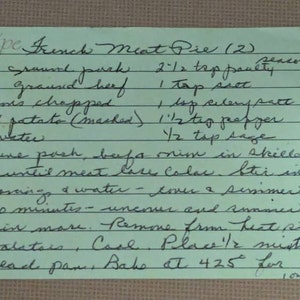 pe French Meat Pie (2)
ground pork 2 1/2 tsp poultry season
ground beef 1 tsp salt
ons chopped 1 tsp celery salt
potato (mashed) 1 1/2 tsp pepper
water 1/2 tsp sage
ine pork, beef & onion in skille
until meat loses color. Stir in
onings & water - cover & simmer
0 minutes - uncover and simmer
min more. Remove from heat, s
otatoes, Cool. Place 1/2 mixt
ead pan, Bake at 425° for